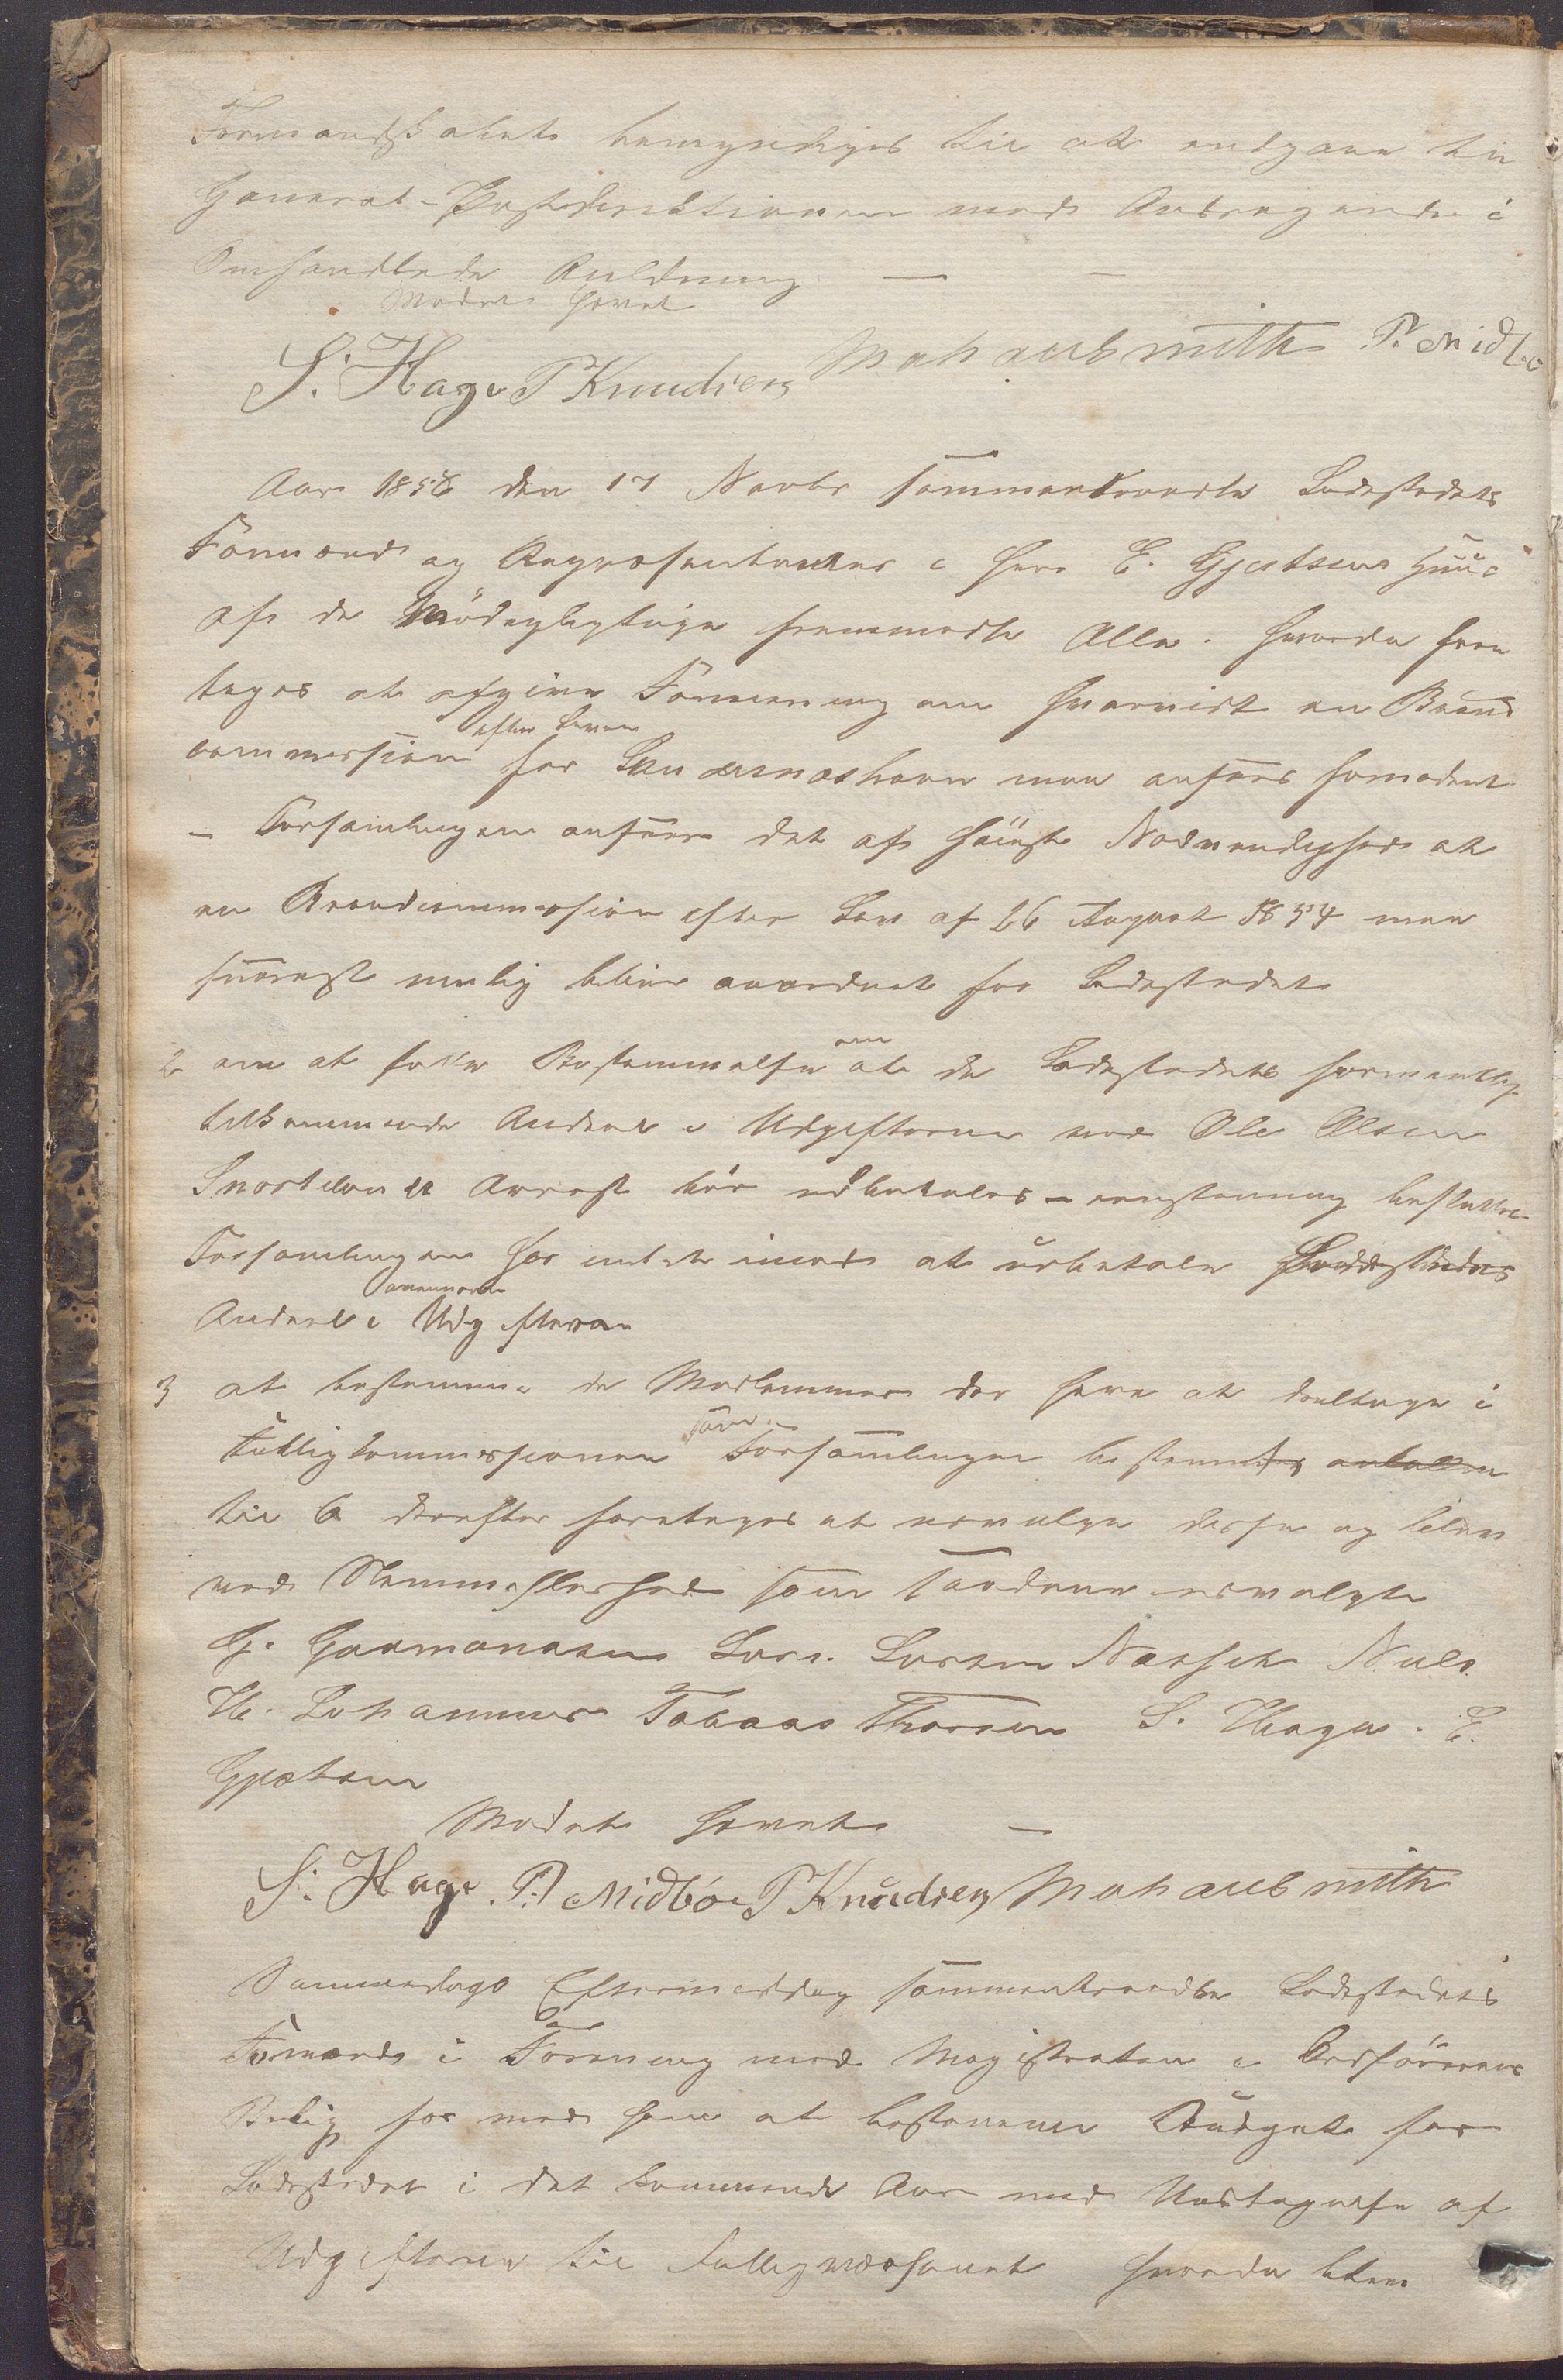 Formandskabet bemyndiges til at indgaae til
General-Postdirektionen med Andragende i
Omhandlede Anledning — —
Mødet hævet
S. Hage P Knudsen Mohausmith P. Midbö
Aar 1858 den 17 Novbr sammentraadte Ladestedets
Formænd og Repræsentanter i Herr E. Gjertsens Huus
af de Mödepligtige fremmødte Alle. hvorda fore
toges at afgive Formening om hvorvidt en Brand
commission efter Loven for Sandnæshavn man ansees fornødent
— Forsamlingen ansaae det af høieste Nødvendighed at
en Brandcommission efter Lov af 26 August 1854 man
snarest mulig bliver anordnet for Ladestedet
2 om at tage Bestemmelse om at de Ladestedet formentlig
tilkommende Andeel i Udgifterne ved Ole Olsen
Arrest bör udbetales — eenstemmig besluttede
Forsamlingen for intet imod at udbetale Ladestedets
Andeel i ommeldte Udgifterne
3 at bestemme de Medlemmer der have at deeltage i
Fattigkommissionen som Forsamlingen bestemtes antallet
til 6 derefter foretoges at udvælge disse og blev
ved Stemmefleerhed som saadanne udvalgte
G. Gabrielsen Lars Larsen Næsset Niels
H. Johannesen Tobias Thorsen S. Hage. E.
Gjertsen
Mødet hævet —
S. Hage. P. Midböe P Knudsen Mohausmith
Sammedags Eftermiddag sammentraadte Ladestedets
Formænd i Forening med Magistraten i Ordförerens
Bolig for med ham at bestemme Budgetet for
Ladestedet i det kommende Aar med Undtagelse af
Udgifterne til Fattigvæsenet hvorda blev